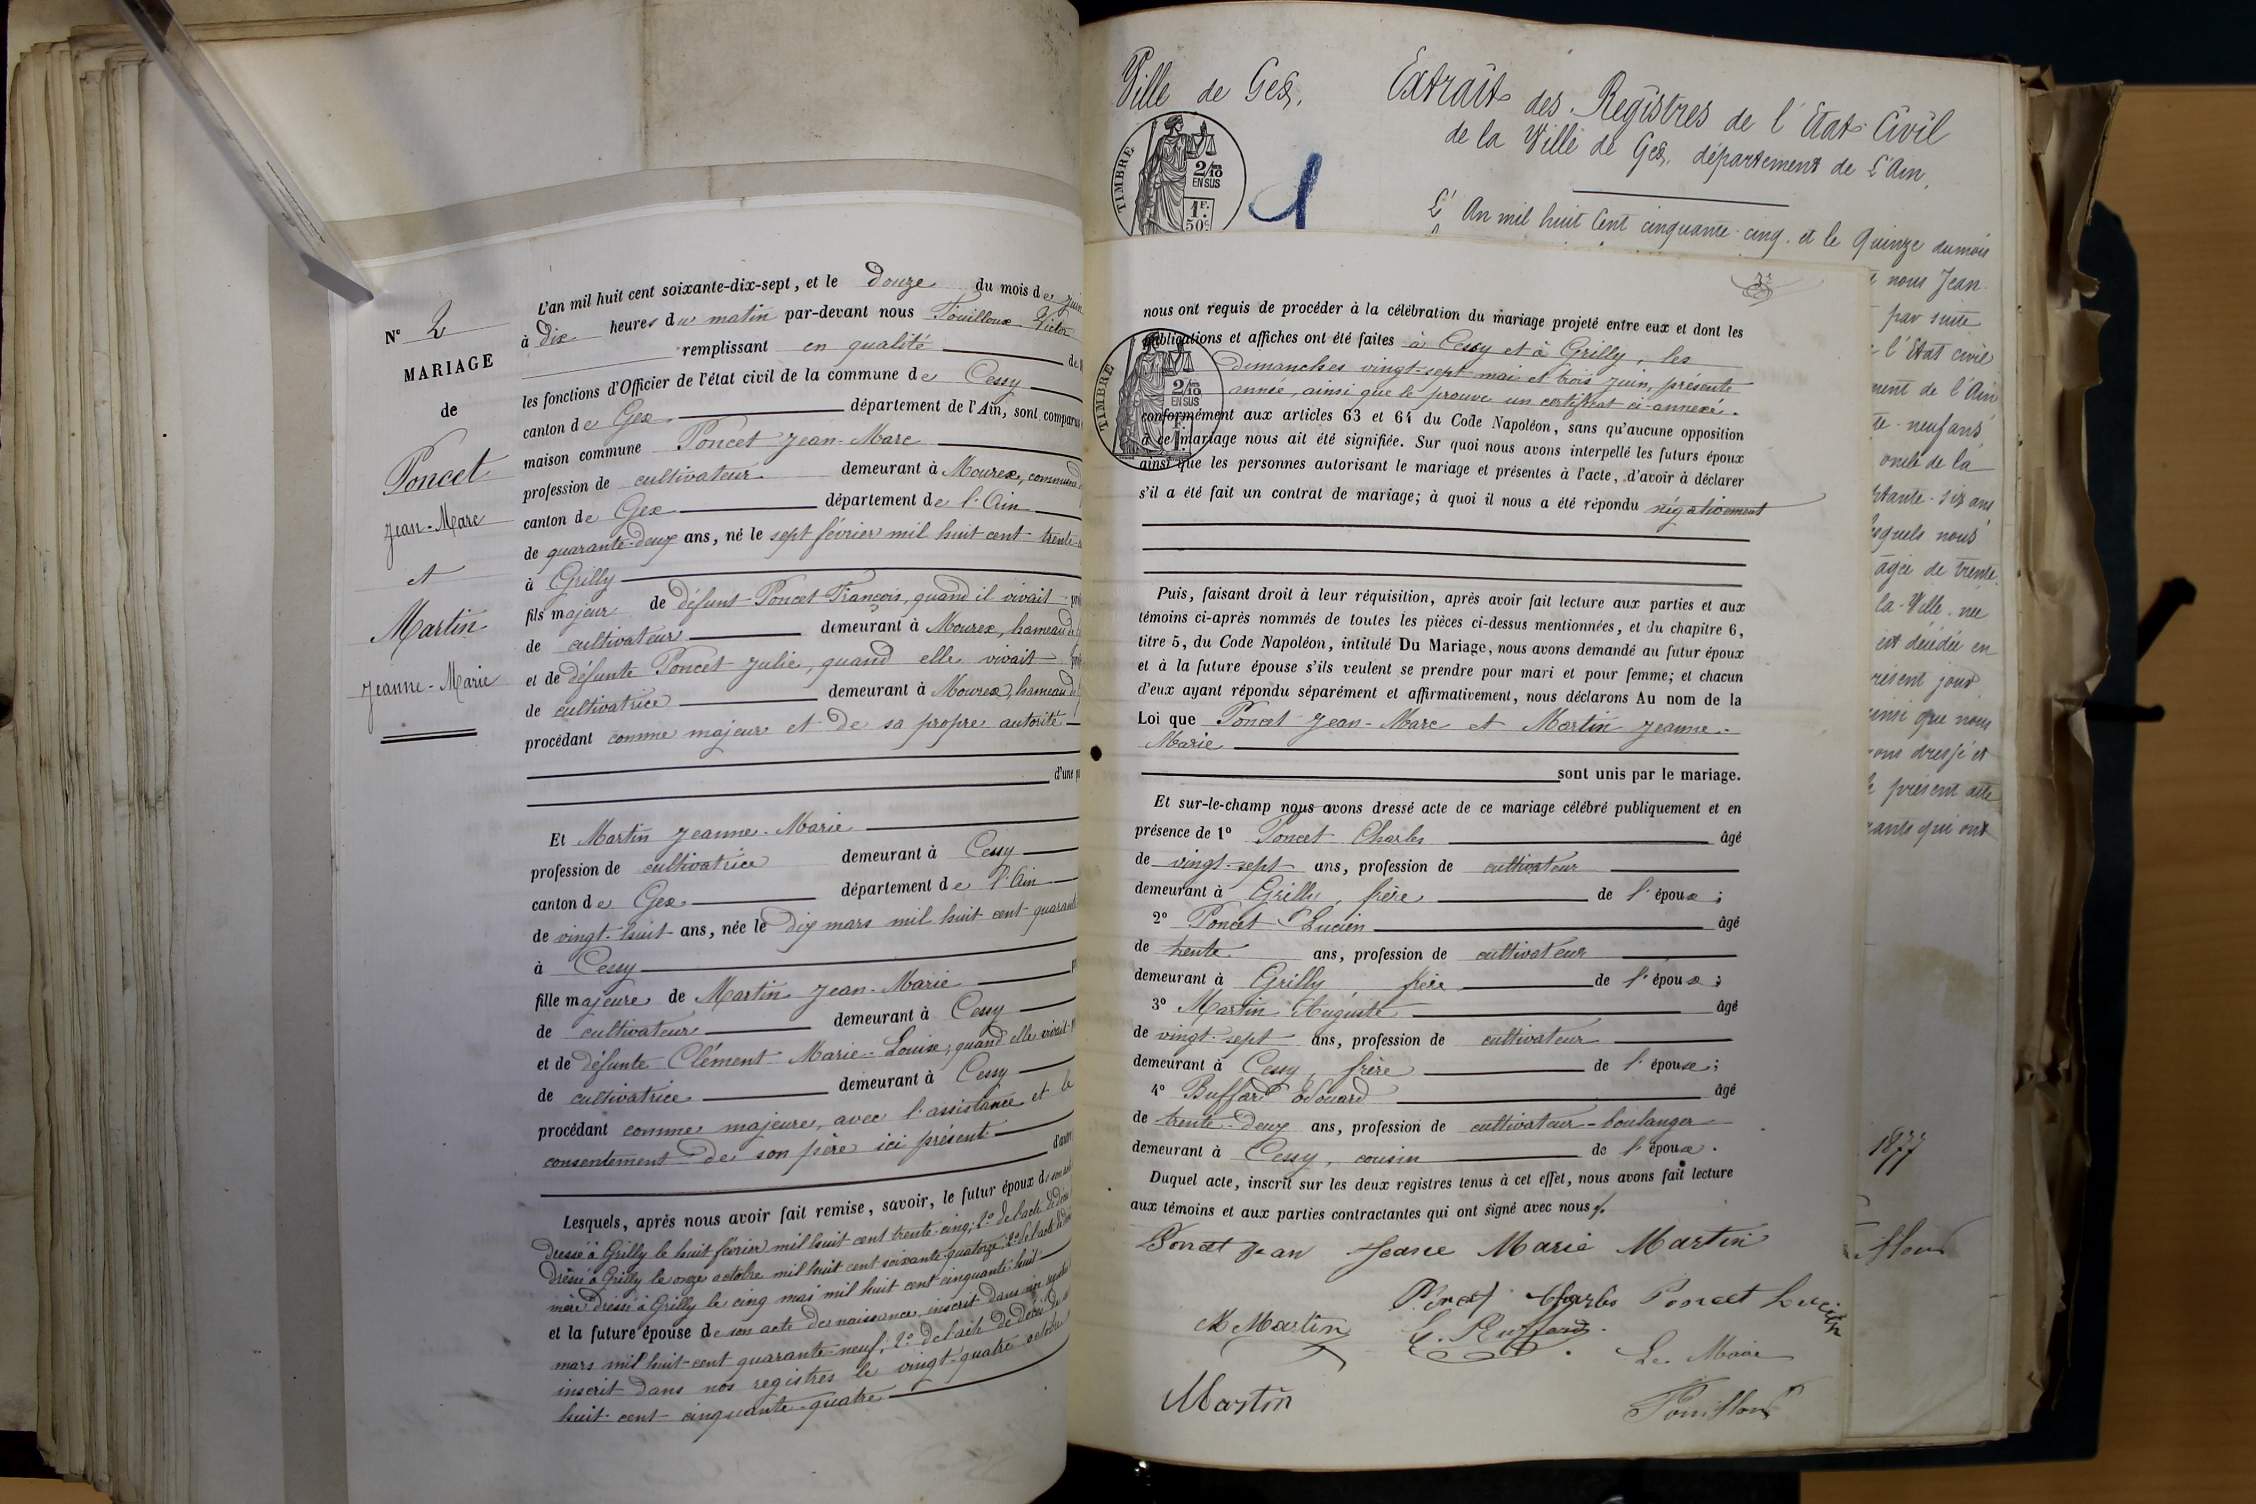 N° 2
MARIAGE
de
Poncet
Jean-Marc
et
Martin
Jeanne-Marie
L'an mil huit cent soixante-dix-sept, et le douze du mois de juin
à dix heures du matin par-devant nous Fouilloux Victor
remplissant en qualité de
les fonctions d'Officier de l'état civil de la commune de Cessy
canton de Gex département de l'Ain, sont comparus
maison commune Poncet Jean-Marc
profession de cultivateur demeurant à Mourex, commune
canton de Gex département de l'Ain
de quarante-deux ans, né le sept février mil huit cent trente
à Grilly
fils majeur de défunt Poncet François, quand il vivait
de cultivateur demeurant à Mourex, hameau de
et de défunte Poncet Julie, quand elle vivait
de cultivatrice demeurant à Mourex, hameau de
procédant comme majeur et de sa propre autorité
d'une
Et Martin Jeanne-Marie
profession de cultivatrice demeurant à Cessy
canton de Gex département de l'Ain
de vingt-huit ans, née le dix mars mil huit cent quarante
à Cessy
fille majeure de Martin Jean-Marie
de cultivateur demeurant à Cessy
et de défunte Clément Marie-Louise, quand elle vivait
de cultivatrice demeurant à Cessy
procédant comme majeure, avec l'assistance et le
consentement de son père ici présent
d'autre
Lesquels, après nous avoir fait remise, savoir, le futur époux de
dressé à Grilly le huit février mil huit cent trente-cinq; 2° de l'acte de
dressé à Grilly le onze octobre mil huit cent soixante-quatorze; de l'acte de
mère dressé à Grilly le cinq mai mil huit cent cinquante-huit
et la future épouse de son acte de naissance, inscrit dans
mars mil huit-cent quarante-neuf, 2° de l'acte de décès de
inscrit dans nos registres le vingt-quatre octobre
huit-cent-cinquante-quatre
Ville de Gex.
Extrait des Registres de l'Etat Civil
de la Ville de Gex, département de l'Ain.
TIMBRE
2/10
EN SUS
1F.
50c.
L'An mil huit Cent cinquante-cinq et le Quinze du mois
nous Jean
par suite
l'Etat civil
ment de l'Ain
te-neuf ans
oncle de la
tante-six ans
esquels nous
agée de trente
la-Ville née
est décédée en
résent jour
ainsi que nous
ons dressé et
le présent acte
rants qui ont
1877
nous ont requis de procéder à la célébration du mariage projeté entre eux et dont les
publications et affiches ont été faites à Cessy et à Grilly, les
dimanches vingt-sept mai et trois juin, présente
année, ainsi que le prouve un certificat ci-annexé.
TIMBRE
2/10
EN SUS
conformément aux articles 63 et 64 du Code Napoléon, sans qu'aucune opposition
à ce mariage nous ait été signifiée. Sur quoi nous avons interpellé les futurs époux
ainsi que les personnes autorisant le mariage et présentes à l'acte, d'avoir à déclarer
s'il a été fait un contrat de mariage; à quoi il nous a été répondu négativement
Puis, faisant droit à leur réquisition, après avoir fait lecture aux parties et aux
témoins ci-après nommés de toutes les pièces ci-dessus mentionnées, et du chapitre 6,
titre 5, du Code Napoléon, intitulé Du Mariage, nous avons demandé au futur époux
et à la future épouse s'ils veulent se prendre pour mari et pour femme; et chacun
d'eux ayant répondu séparément et affirmativement, nous déclarons Au nom de la
Loi que Poncet Jean-Marc et Martin Jeanne-
Marie
sont unis par le mariage.
Et sur-le-champ nous avons dressé acte de ce mariage célébré publiquement et en
présence de 1° Poncet Charles âgé
de vingt-sept ans, profession de cultivateur
demeurant à Grilly, frère de l'époux;
2° Poncet Lucien âgé
de trente ans, profession de cultivateur
demeurant à Grilly frère de l'époux;
3° Martin Auguste âgé
de vingt-sept ans, profession de cultivateur
demeurant à Cessy, frère de l'épouse;
4° Buffard Edouard âgé
de trente-deux ans, profession de cultivateur-boulanger
demeurant à Cessy, cousin de l'époux.
Duquel acte, inscrit sur les deux registres tenus à cet effet, nous avons fait lecture
aux témoins et aux parties contractantes qui ont signé avec nous
Poncet Jean Jeanne Marie Martin
Charles Poncet Lucien
Martin
Le Maire
Martin